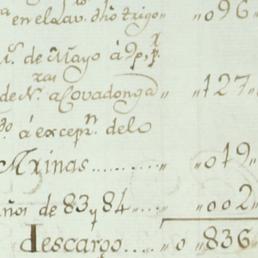 en el Lav. dho trigo „ „096„
r.s de Mayo á 9 p.r
ras
de N.a Covadonga „ „127„
á excep.n de lo
Mxinas......... „ „019„
años de 83 y 84 .... „ „002„
descargo.... „ 0 „836„